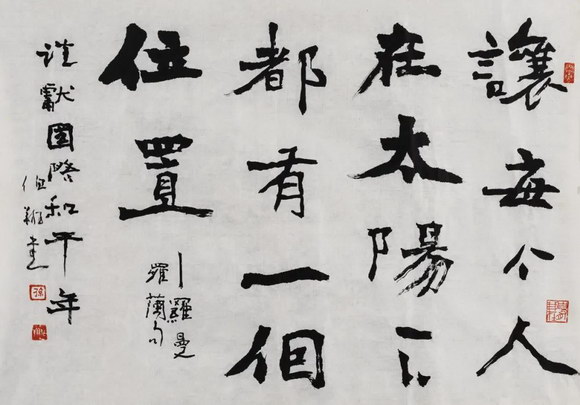 讓每个人
在太陽下
都有一個
位置
—羅曼
羅蘭句
謹獻國際和平年
伯翔書